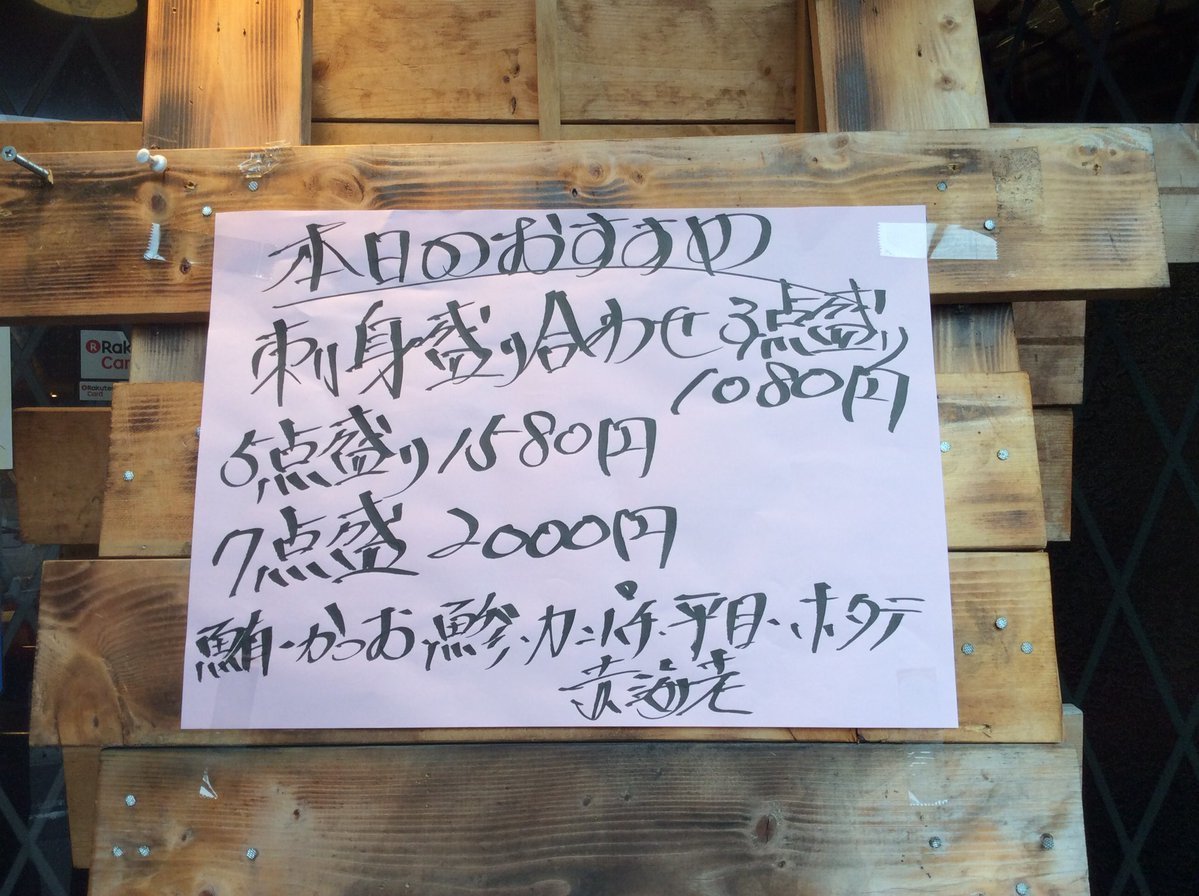 本日のおすすめ
刺身盛り合わせ3点盛り
1080円
5点盛り1580円
7点盛 2000円
鮪・かつお・鯵・カンパチ・平目・ホタテ
赤海老
Rakuten
Card